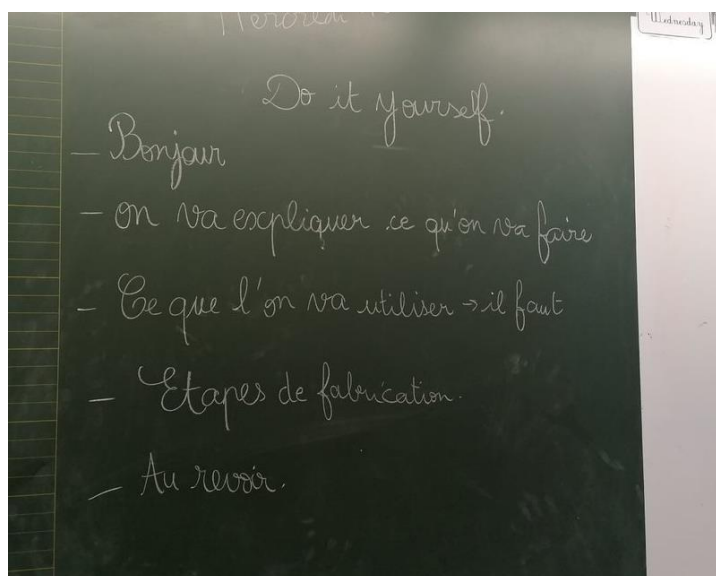 Mercredi
Wednesday
Do it yourself.
- Bonjour
- on va expliquer ce qu'on va faire
- Ce que l'on va utiliser → il faut
- Etapes de fabrication.
- Au revoir.